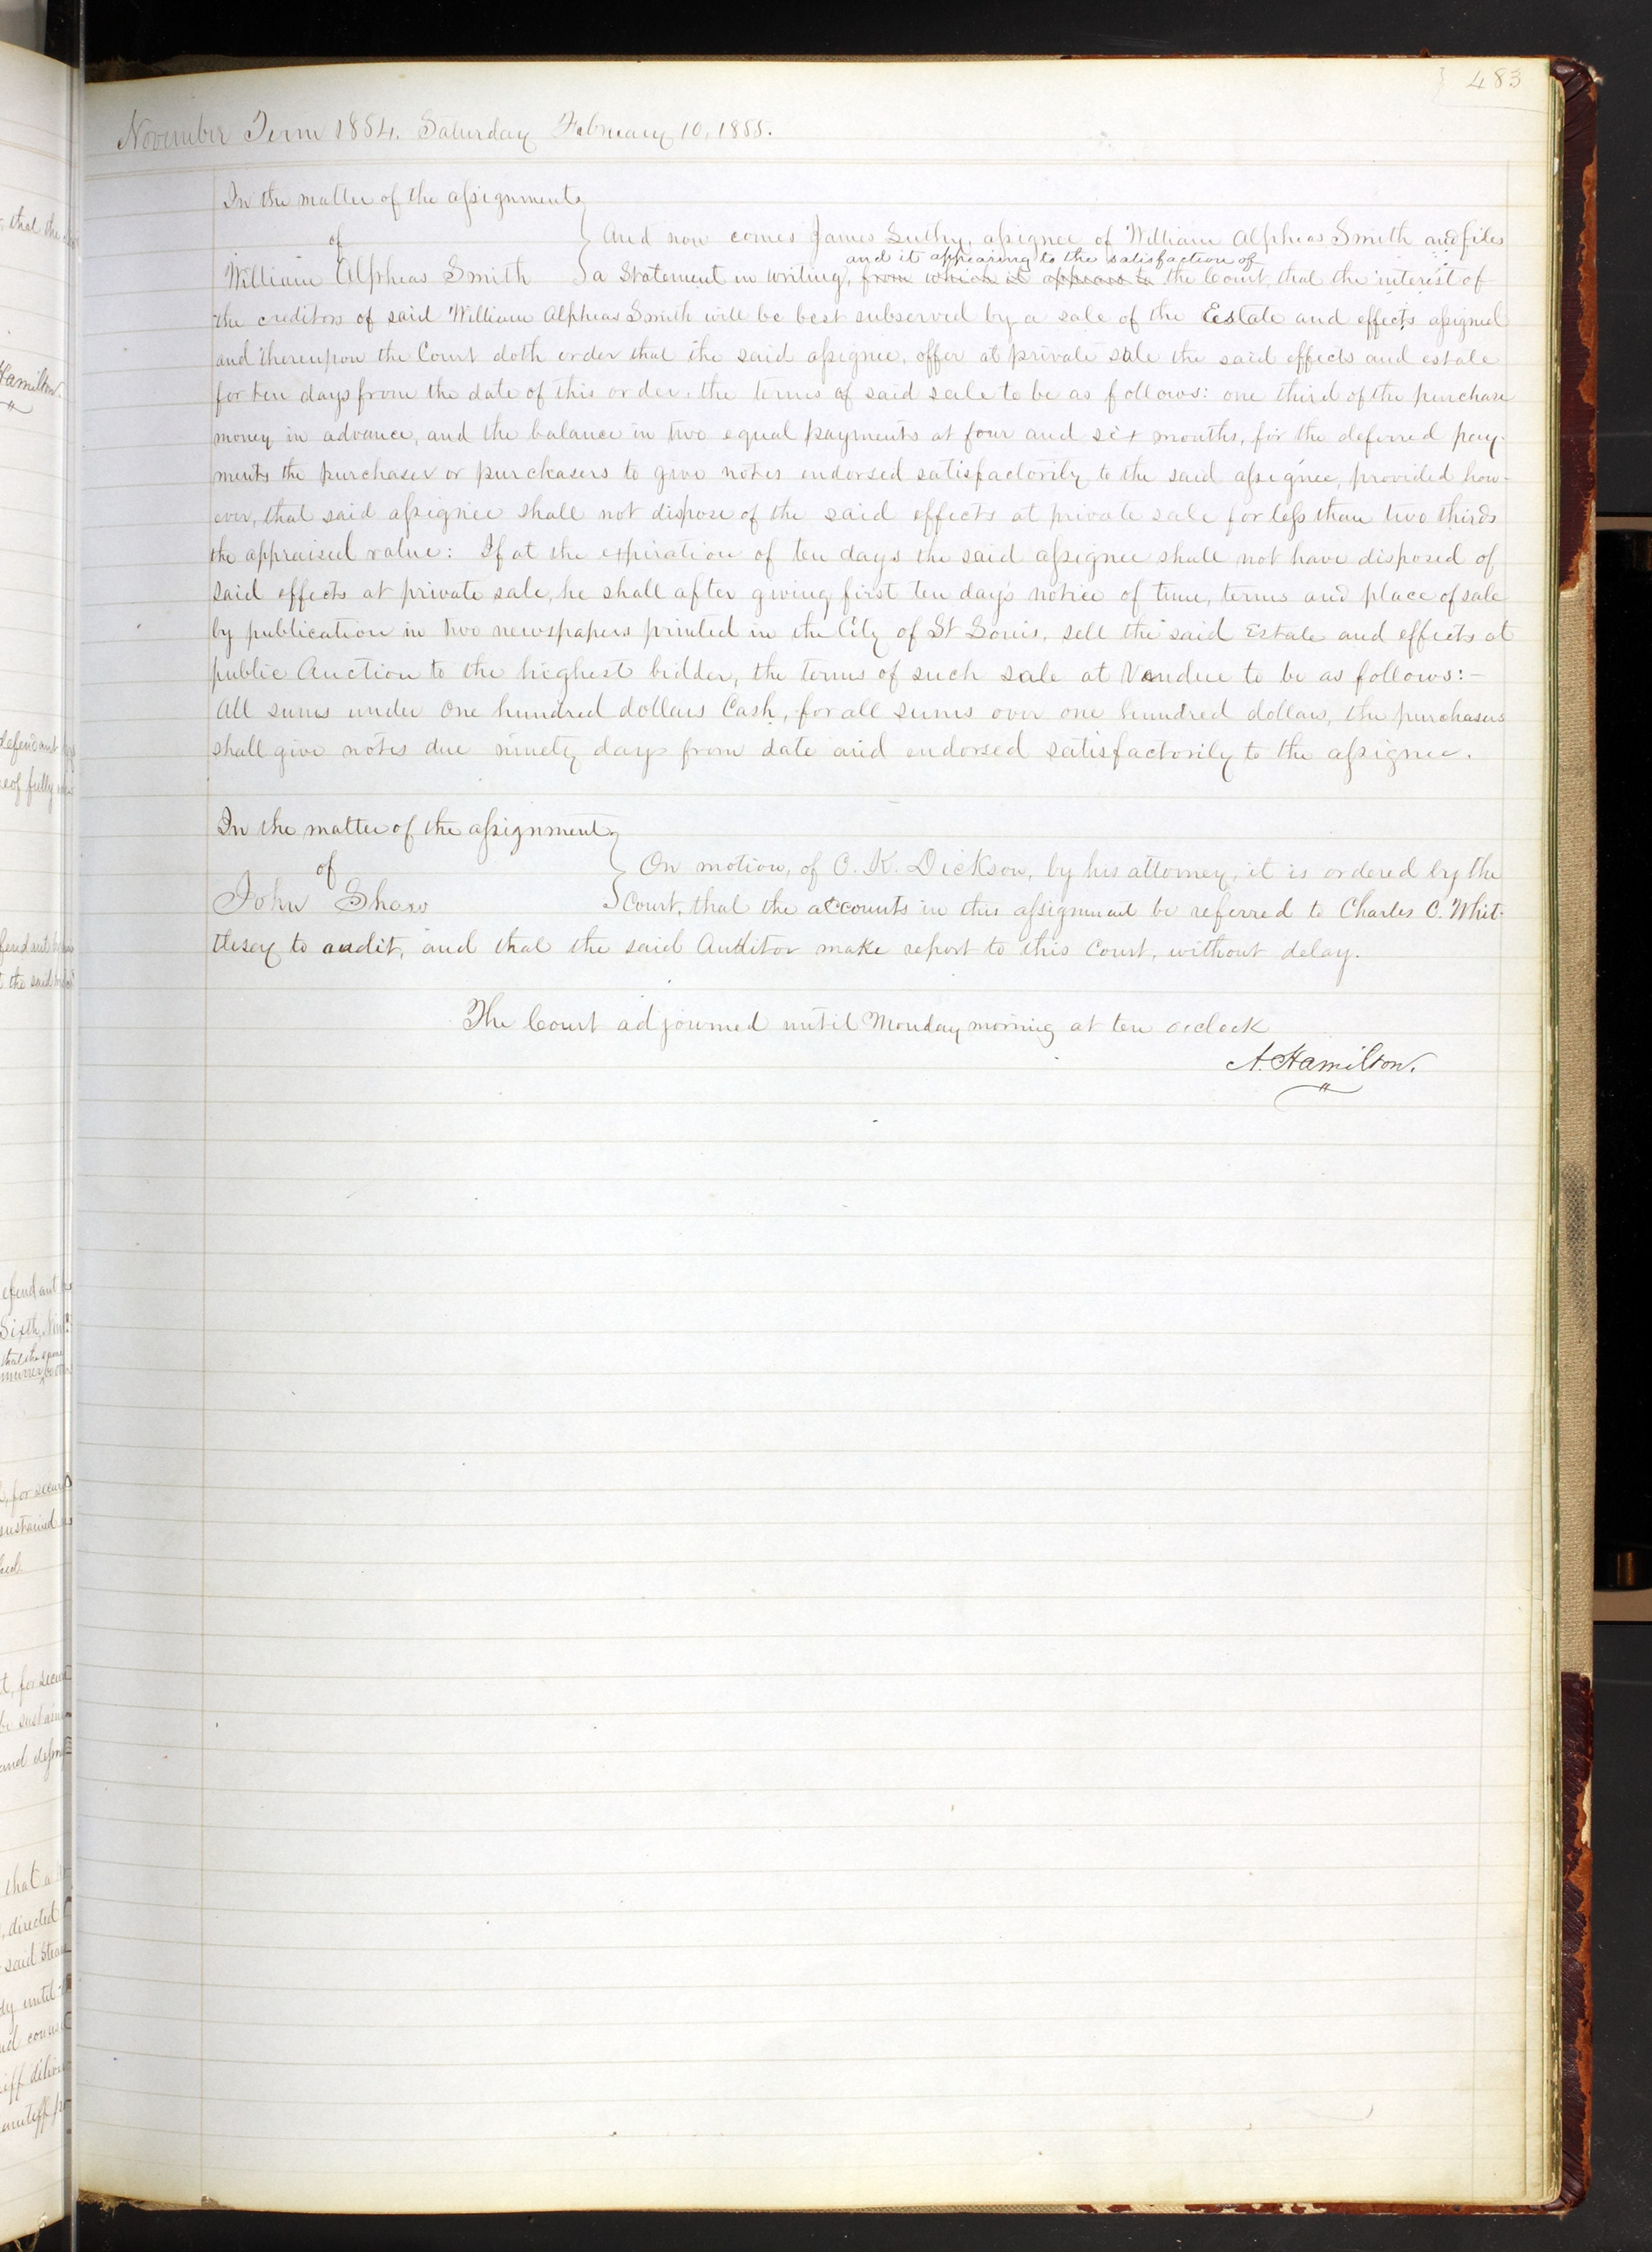 483
November Term 1854. Saturday February 10, 1855.
In the matter of the assignment
of
William Alpheas Smith
And now comes James assignee of William Alpheas Smith and files
and it appearing to the satisfaction of
a Statement in writing, from which it appears to the Court, that the interest of
the creditors of said William Alpheas Smith will be best subserved by a sale of the Estate and effects assigned
and thereupon the Court doth order that the said assignee, offer at private sale the said effects and estate
for ten days from the date of this order. the terms of said sale to be as follows: one third of the purchase
money in advance, and the balance in two equal payments at four and six months, for the deferred pay-
ments the purchaser or purchasers to give notes endorsed satisfactorily to the said assignee, provided how-
ever, that said assignee shall not dispose of the said effects at private sale for less than two thirds
the appraised value: If at the expiration of ten days the said assignee shall not have disposed of
said effects at private sale, he shall after giving first ten days notice of time, terms and place of sale
by publication in two newspapers printed in the City of St Louis, sell the said Estate and effects at
public Auction to the highest bidder, the terms of such sale at Vendue to be as follows:-
All sums under One hundred dollars Cash, for all sums over one hundred dollars, the purchasers
shall give notes due ninety days from date and endorsed satisfactorily to the assignee.
In the matter of the assignment
of
John Shaw
On motion, of O. K. Dickson, by his attorney, it is ordered by the
Court, that the accounts in this assignment be referred to Charles C. Whit-
tlesey to audit, and that the said Auditor make report to this Court, without delay.
The Court adjourned until Monday morning at ten o'clock
A. Hamilton.